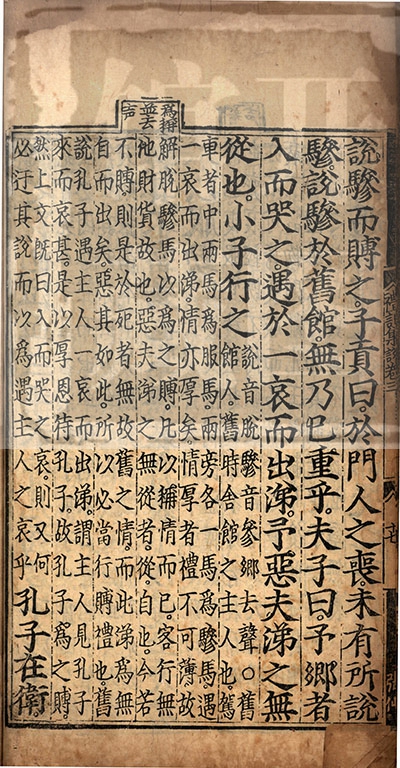 說驂而賻之。子貢曰。於門人之喪。未有所說
驂。說驂於舊館。無乃已重乎。夫子曰。予鄉者
入而哭之。遇於一哀而出涕。予惡夫涕之無
從也。小子行之
說音脫驂音參鄉去聲○舊
館人。舊時舍館之主人也。駕
車者。中兩馬為服馬。兩旁各一馬為驂馬。遇
一哀而出涕。情亦厚矣。情厚者。禮不可薄。故
解脫驂馬以為之賻。凡以稱情而已。客行無
他財貨故也。惡夫涕之無從者。從。自也。今若
不賻。則是於死者無故舊之情。而此涕為無
自而出矣。惡其如此。所以必當行賻禮也。舊
說。孔子遇主人一哀而出涕。謂主人見孔子
來而哀甚。是以厚恩待孔子。故孔子為之賻。
然上文既曰入而哭之哀。則又何
必迂其說而以為遇主人之哀乎
孔子在衛
為稱
並去
聲
禮記集說卷三